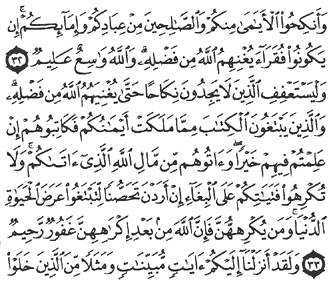 وَأَنكِحُوا۟ ٱلْأَيَـٰمَىٰ مِنكُمْ وَٱلصَّـٰلِحِينَ مِنْ عِبَادِكُمْ وَإِمَآئِكُمْ ۚ إِن
يَكُونُوا۟ فُقَرَآءَ يُغْنِهِمُ ٱللَّهُ مِن فَضْلِهِۦ ۗ وَٱللَّهُ وَٰسِعٌ عَلِيمٌ ٣٢
وَلْيَسْتَعْفِفِ ٱلَّذِينَ لَا يَجِدُونَ نِكَاحًا حَتَّىٰ يُغْنِيَهُمُ ٱللَّهُ مِن فَضْلِهِۦ ۗ
وَٱلَّذِينَ يَبْتَغُونَ ٱلْكِتَـٰبَ مِمَّا مَلَكَتْ أَيْمَـٰنُكُمْ فَكَاتِبُوهُمْ إِنْ
عَلِمْتُمْ فِيهِمْ خَيْرًا ۖ وَءَاتُوهُم مِّن مَّالِ ٱللَّهِ ٱلَّذِىٓ ءَاتَىٰكُمْ ۚ وَلَا
تُكْرِهُوا۟ فَتَيَـٰتِكُمْ عَلَى ٱلْبِغَآءِ إِنْ أَرَدْنَ تَحَصُّنًا لِّتَبْتَغُوا۟ عَرَضَ ٱلْحَيَوٰةِ
ٱلدُّنْيَا ۚ وَمَن يُكْرِههُّنَّ فَإِنَّ ٱللَّهَ مِنۢ بَعْدِ إِكْرَٰهِهِنَّ غَفُورٌ رَّحِيمٌ
٣٣ وَلَقَدْ أَنزَلْنَآ إِلَيْكُمْ ءَايَـٰتٍ مُّبَيِّنَـٰتٍ وَمَثَلًا مِّنَ ٱلَّذِينَ خَلَوْا۟